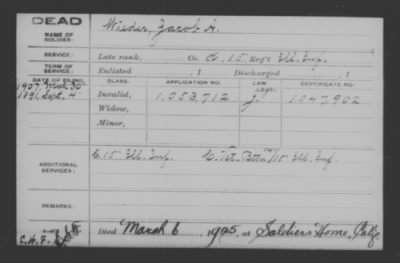 DEAD
NAME OF SOLDIER:
Wilder, Jacob
SERVICE:
Late rank, Co. 15 Reg't Ill. Inf.
TERM OF SERVICE:
Enlisted , 1 Discharged , 1
DATE OF FILING.
CLASS.
APPLICATION NO.
LAW.
CERTIFICATE NO.
1891, Sept. 4
Invalid,
1.053.712
1.047.902
Widow,
Minor,
ADDITIONAL SERVICES:
C. 15 Ill. Inf.
15 Ill. Inf.
REMARKS:
Died March 6, 1925, at Soldiers Home,